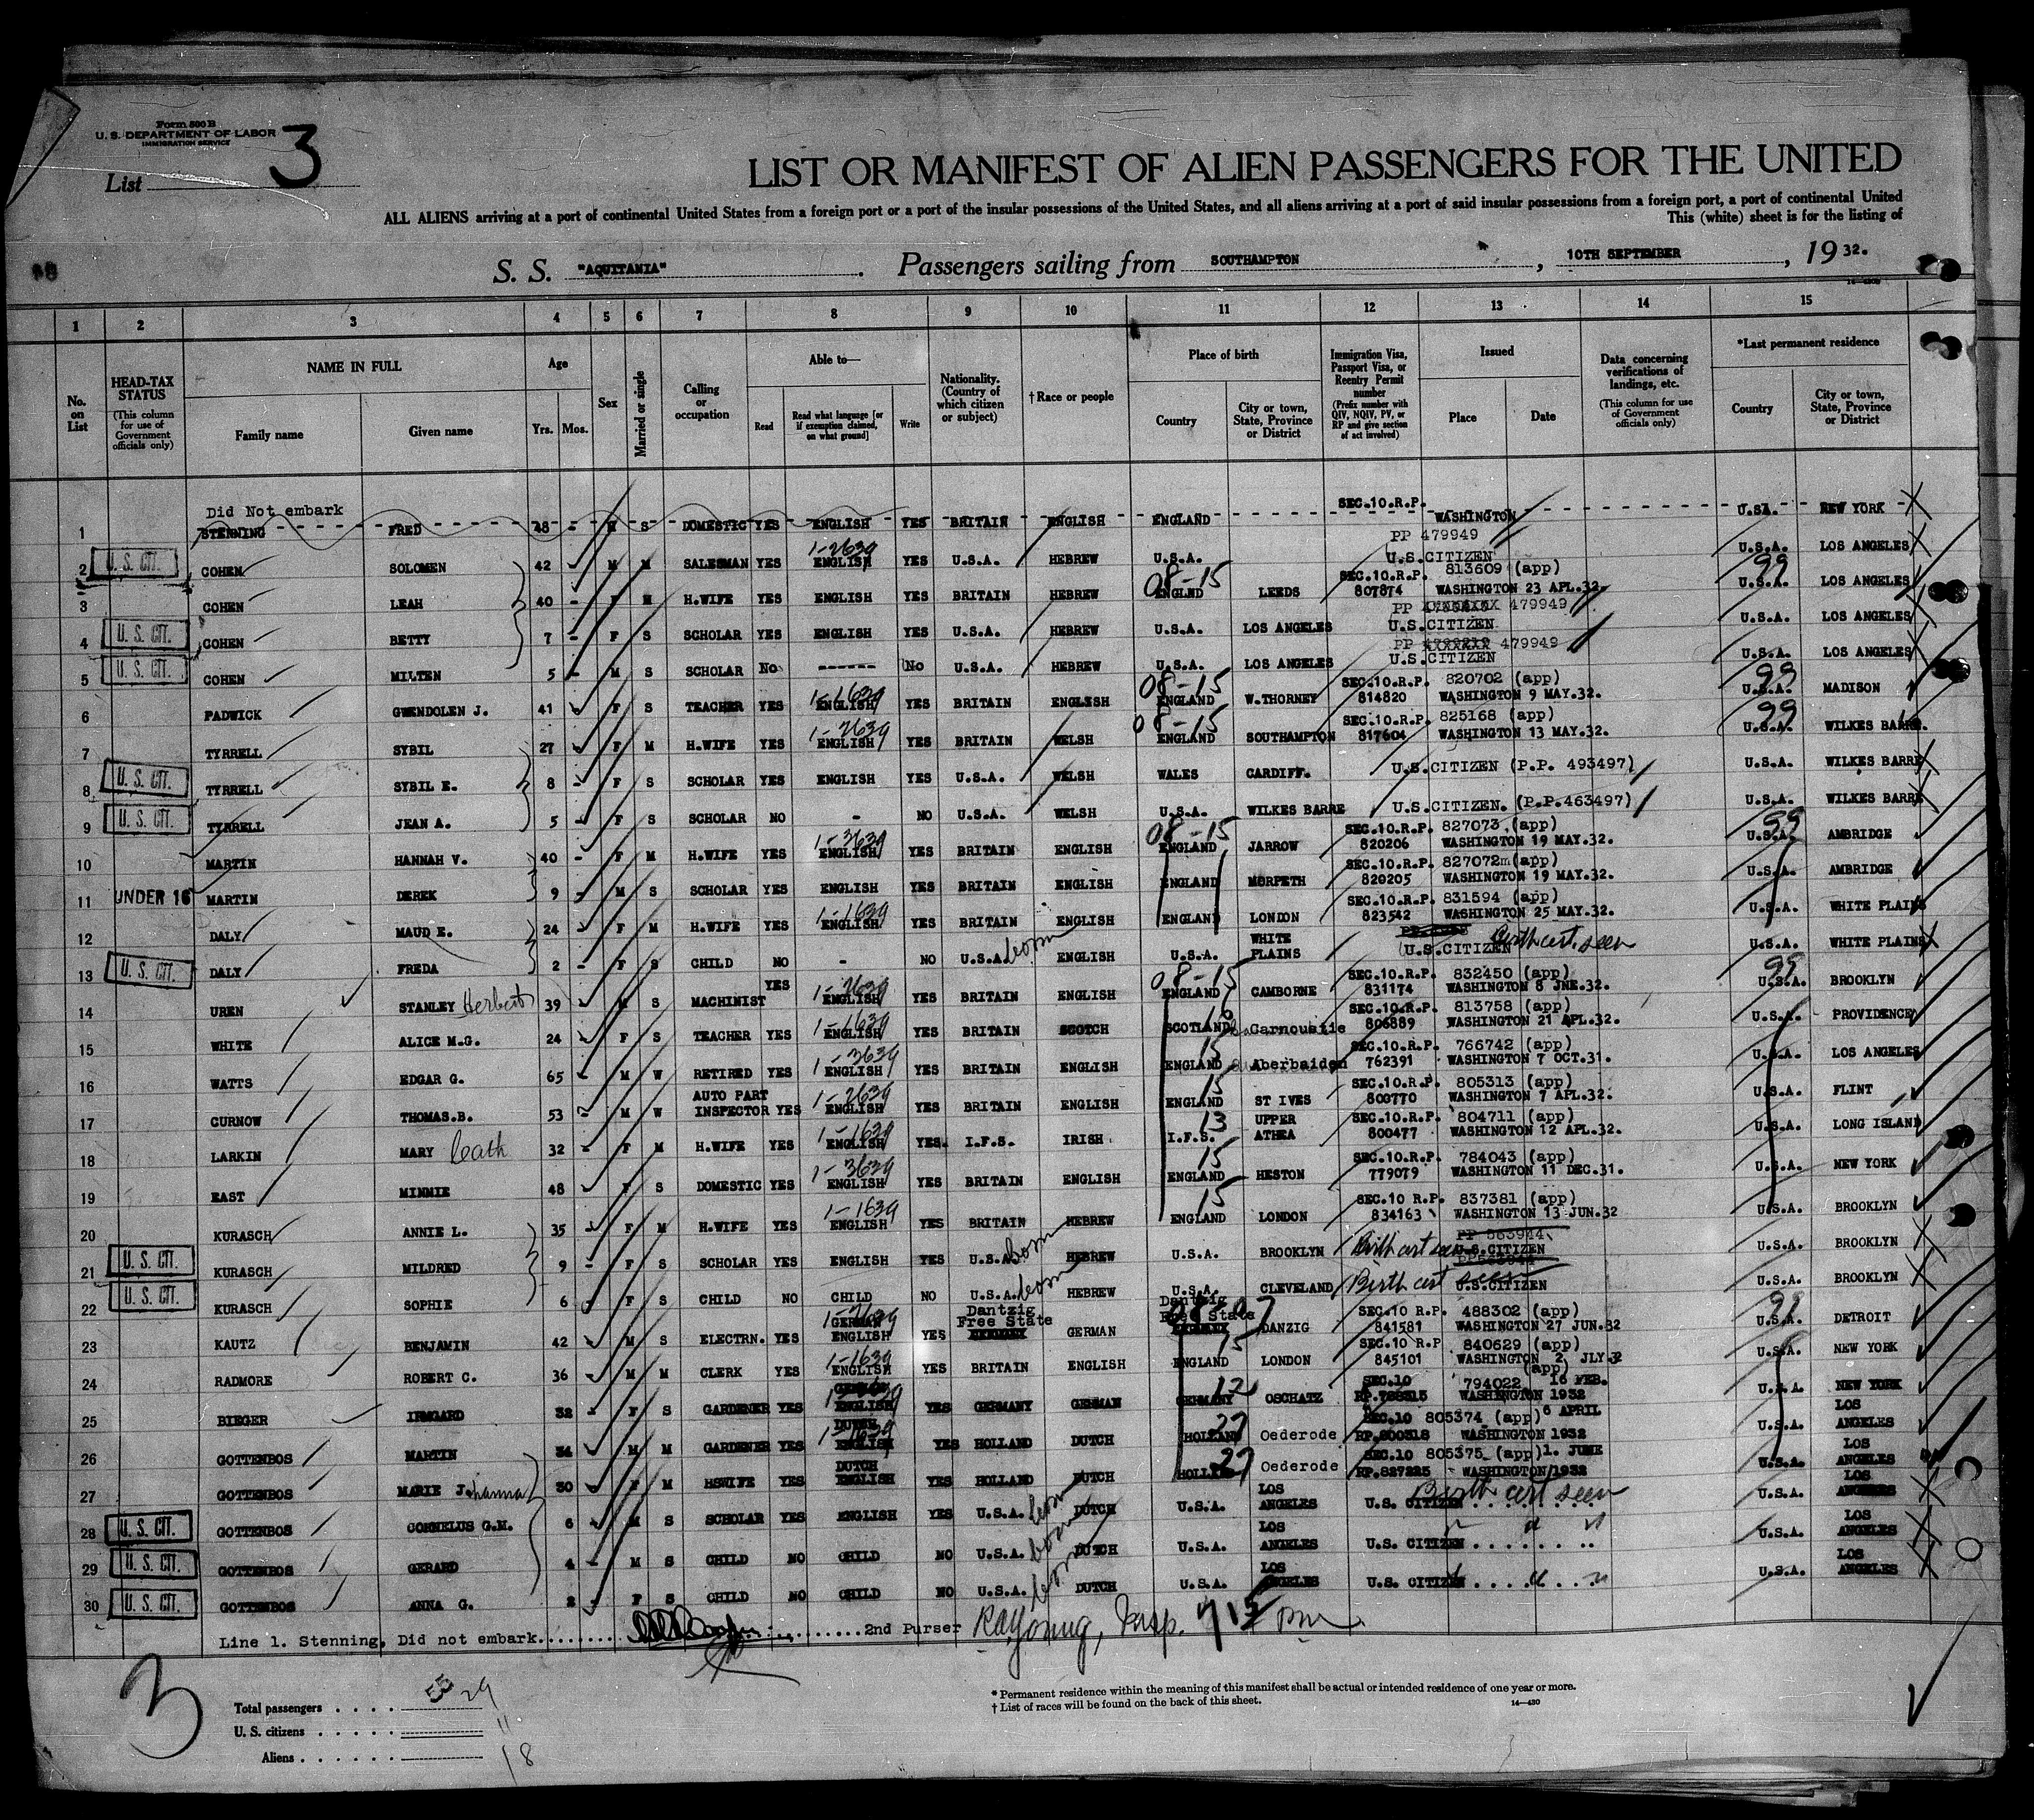 Form 500 B
U. S. DEPARTMENT OF LABOR
IMMIGRATION SERVICE
List 3
LIST OR MANIFEST OF ALIEN PASSENGERS FOR THE UNITED
ALL ALIENS arriving at a port of continental United States from a foreign port or a port of the insular possessions of the United States, and all aliens arriving at a port of said insular possessions from a foreign port, a port of continental United
This (white) sheet is for the listing of
S. S. "AQUITANIA" . Passengers sailing from SOUTHAMPTON , 10TH SEPTEMBER , 19 32.
1 2 3 4 5 6 7 8 9 10 11 12 13 14 15
No. on List
HEAD-TAX STATUS (This column for use of Government officials only)
NAME IN FULL Family name Given name
Age Yrs. Mos.
Sex
Married or single
Calling or occupation
Able to— Read Read what language [or if exemption claimed, on what ground] Write
Nationality. (Country of which citizen or subject)
† Race or people
Place of birth Country City or town, State, Province or District
Immigration Visa, Passport Visa, or Reentry Permit number (Prefix number with QIV, NQIV, PV, or RP and give section of act involved)
Issued Place Date
Data concerning verifications of landings, etc. (This column for use of Government officials only)
*Last permanent residence Country City or town, State, Province or District
Did Not embark
1 STENNING FRED 48 - M S DOMESTIC YES ENGLISH YES BRITAIN ENGLISH ENGLAND SEC.10.R.P. WASHINGTON U.S.A. NEW YORK
2 U. S. CIT. COHEN SOLOMEN 42 M M SALESMAN YES 1-2639 ENGLISH YES U.S.A. HEBREW U.S.A. PP 479949 U.S.CITIZEN U.S.A. LOS ANGELES
3 COHEN LEAH 40 - F M H.WIFE YES ENGLISH YES BRITAIN HEBREW 08-15 ENGLND LEEDS SEC.10.R.P. 813609 (app) 807874 WASHINGTON 23 APL.32. 99 U.S.A. LOS ANGELES
4 U. S. CIT. COHEN BETTY 7 - F S SCHOLAR YES ENGLISH YES U.S.A. HEBREW U.S.A. LOS ANGELES PP 479949 U.S.CITIZEN U.S.A. LOS ANGELES
5 U. S. CIT. COHEN MILTEN 5 - M S SCHOLAR No ------ No U.S.A. HEBREW U.S.A. LOS ANGELES PP 479949 U.S.CITIZEN U.S.A. LOS ANGELES
6 PADWICK GWENDOLEN J. 41 F S TEACHER YES 1-1639 ENGLISH YES BRITAIN ENGLISH 08-15 ENGLAND W.THORNEY SEC.10.R.P. 820702 (app) 814820 WASHINGTON 9 MAY.32. 99 U.S.A. MADISON
7 TYRRELL SYBIL 27 F M H.WIFE YES 1-2639 ENGLISH YES BRITAIN WELSH 08-15 ENGLAND SOUTHAMPTON SEC.10.R.P. 825168 (app) 817604 WASHINGTON 13 MAY.32. 99 U.S.A. WILKES BARRE.
8 U. S. CIT. TYRRELL SYBIL E. 8 - F S SCHOLAR YES ENGLISH YES U.S.A. WELSH WALES CARDIFF. U.S.CITIZEN (P.P. 493497) U.S.A. WILKES BARRE
9 U. S. CIT. TYRRELL JEAN A. 5 - F S SCHOLAR NO - NO U.S.A. WELSH U.S.A. WILKES BARRE U.S.CITIZEN. (P.P.463497) U.S.A. WILKES BARRE
10 MARTIN HANNAH V. 40 - F M H.WIFE YES 1-3639 ENGLISH YES BRITAIN ENGLISH 08-15 ENGLAND JARROW SEC.10.R.P. 827073 (app) 820206 WASHINGTON 19 MAY.32. 99 U.S.A. AMBRIDGE
11 UNDER 16 MARTIN DEREK 9 - M S SCHOLAR YES ENGLISH YES BRITAIN ENGLISH ENGLAND MORPETH SEC.10.R.P. 827072m(app) 820205 WASHINGTON 19 MAY.32. U.S.A. AMBRIDGE
12 DALY MAUD E. 24 F M H.WIFE YES 1-1639 ENGLISH YES BRITAIN ENGLISH ENGLAND LONDON SEC.10.R.P. 831594 (app) 823542 WASHINGTON 25 MAY.32. U.S.A. WHITE PLAINS
13 U. S. CIT. DALY FREDA 2 - F S CHILD NO - NO U.S.A. born ENGLISH U.S.A. WHITE PLAINS U.S.CITIZEN Birth cert. seen U.S.A. WHITE PLAINS
14 UREN STANLEY Herbert 39 M S MACHINIST YES 1-2639 ENGLISH YES BRITAIN ENGLISH 08-15 ENGLAND CAMBORNE SEC.10.R.P. 832450 (app) 831174 WASHINGTON 8 JNE.32. 99 U.S.A. BROOKLYN
15 WHITE ALICE M.G. 24 F S TEACHER YES 1-1639 ENGLISH YES BRITAIN SCOTCH SCOTLAND Carnoustie SEC.10.R.P. 813758 (app) 806889 WASHINGTON 21 APL.32. U.S.A. PROVIDENCE
16 WATTS EDGAR G. 65 M W RETIRED YES 1-3639 ENGLISH YES BRITAIN ENGLISH 15 ENGLAND Aberbaiden SEC.10.R.P. 766742 (app) 762391 WASHINGTON 7 OCT.31. U.S.A. LOS ANGELES
17 CURNOW THOMAS.B. 53 M W AUTO PART INSPECTOR YES 1-2639 ENGLISH YES BRITAIN ENGLISH 15 ENGLAND ST IVES SEC.10.R.P. 805313 (app) 800770 WASHINGTON 7 APL.32. U.S.A. FLINT
18 LARKIN MARY Cath 32 F M H.WIFE YES 1-1639 ENGLISH YES. I.F.S. IRISH 13 I.F.S. UPPER ATHEA SEC.10.R.P. 804711 (app) 800477 WASHINGTON 12 APL.32. U.S.A. LONG ISLAND
19 EAST MINNIE 48 F S DOMESTIC YES 1-3639 ENGLISH YES BRITAIN ENGLISH 15 ENGLAND HESTON SEC.10.R.P. 784043 (app) 779079 WASHINGTON 11 DEC.31. U.S.A. NEW YORK
20 KURASCH ANNIE L. 35 F M H.WIFE YES 1-1639 ENGLISH YES BRITAIN HEBREW 15 ENGLAND LONDON SEC.10 R.P. 837381 (app) 834163 WASHINGTON 13 JUN.32 U.S.A. BROOKLYN
21 U. S. CIT. KURASCH MILDRED 9 - F S SCHOLAR YES ENGLISH YES U.S.A. born HEBREW U.S.A. BROOKLYN Birth cert seen PP 563944 U.S.CITIZEN U.S.A. BROOKLYN
22 U. S. CIT. KURASCH SOPHIE 6 F S CHILD NO CHILD NO U.S.A. born HEBREW U.S.A. CLEVELAND Birth cert seen PP563944 U.S.CITIZEN U.S.A. BROOKLYN
23 KAUTZ BENJAMIN 42 M S ELECTRN. YES GERMAN ENGLISH YES Dantzig Free State GERMAN Dantzig Free State DANZIG SEC.10 R.P. 488302 (app) 841581 WASHINGTON 27 JUN.32 U.S.A. DETROIT
24 RADMORE ROBERT C. 36 M M CLERK YES 1-1639 ENGLISH YES BRITAIN ENGLISH 15 ENGLAND LONDON SEC.10 R.P 840629 (app) 845101 WASHINGTON 2 JLY.32 U.S.A. NEW YORK
25 BIEGER IRMGARD 32 F S GARDENER YES GERMAN ENGLISH YES GERMANY GERMAN 12 GERMANY OSCHATZ SEC.10 794022 (app) 16 FEB. WASHINGTON 1932 U.S.A. NEW YORK
26 GOTTENBOS MARTIN 34 M M GARDENER YES DUTCH 1-1639 ENGLISH YES HOLLAND DUTCH 27 HOLLAND Oederode SEC.10 805374 (app) 6 APRIL RP.800318 WASHINGTON 1932 U.S.A. LOS ANGELES
27 GOTTENBOS MARIE Johanna 30 F M HSWIFE YES DUTCH ENGLISH YES HOLLAND DUTCH 27 HOLLAND Oederode SEC.10 805375 (app) 1. JUNE RP.827225 WASHINGTON/1932 U.S.A. LOS ANGELES
28 U. S. CIT. GOTTENBOS CORNELUS G.M. 6 M S SCHOLAR YES ENGLISH YES U.S.A. born DUTCH U.S.A. LOS ANGELES Birth cert seen U.S. CITIZEN...... U.S.A. LOS ANGELES
29 U. S. CIT. GOTTENBOS GERARD 4 - M S CHILD NO CHILD NO U.S.A. born DUTCH U.S.A. LOS ANGELES " " " U.S. CITIZEN....... U.S.A. LOS ANGELES
30 U. S. CIT. GOTTENBOS ANNA G. 2 F S CHILD NO CHILD NO U.S.A. born DUTCH U.S.A. LOS ANGELES " " " U.S. CITIZEN....... U.S.A. LOS ANGELES
Line 1. Stenning, Did not embark.................2nd Purser RA Young, Insp.
3
Total passengers . . . . 29
U. S. citizens . . . . . 11
Aliens . . . . . . 18
* Permanent residence within the meaning of this manifest shall be actual or intended residence of one year or more.
† List of races will be found on the back of this sheet.
14—430